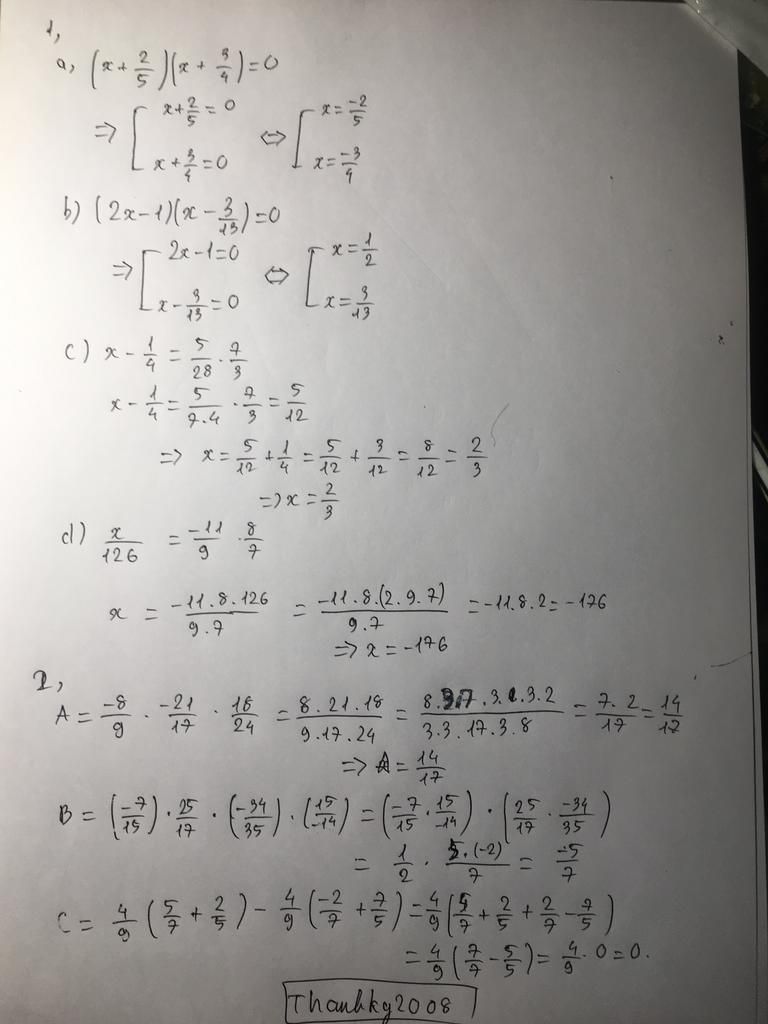 1,
a, (x + 2/5)(x + 3/4) = 0
=> [ x + 2/5 = 0 <=> [ x = -2/5
x + 3/4 = 0 x = -3/4
b) (2x - 1)(x - 3/13) = 0
=> [ 2x - 1 = 0 <=> [ x = 1/2
x - 3/13 = 0 x = 3/13
c) x - 1/4 = 5/28 . 7/3
x - 1/4 = 5/7.4 . 7/3 = 5/12
=> x = 5/12 + 1/4 = 5/12 + 3/12 = 8/12 = 2/3
=> x = 2/3
d) x/126 = -11/9 . 8/7
x = -11.8.126/9.7 = -11.8.(2.9.7)/9.7 = -11.8.2 = -176
=> x = -176
2,
A = -8/9 . -21/17 . 18/24 = 8.21.18/9.17.24 = /3.3.17.3.8 = 7.2/17 = 14/17
=> A = 14/17
B = (-7/15) . 25/17 . (-34/35) . (15/-14) = (-7/15 . 15/-14) . (25/17 . -34/35)
= 1/2 . 5.(-2)/7 = -5/7
C = 4/9 (5/7 + 2/5) - 4/9 (-2/7 + 7/5) = 4/9 (5/7 + 2/5 + 2/7 - 7/5)
= 4/9 (7/7 - 5/5) = 4/9 . 0 = 0.
Thanhkg2008